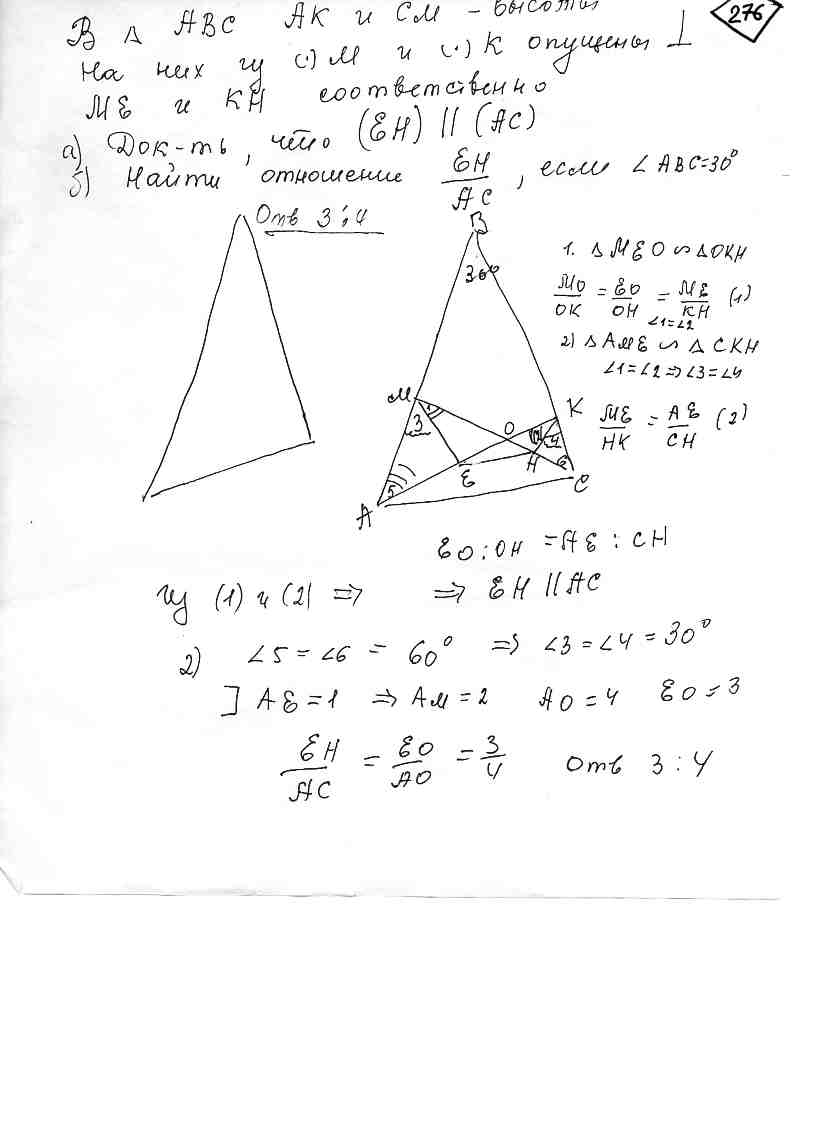 276
В △ ABC AK и CM – высоты
На них из (·) M и (·) K опущены ⊥
ME и KH соответственно
а) Док-ть, что (EH) || (AC)
б) Найти отношение EH/AC, если ∠ ABC=30°
Отв 3:4
B
30°
M
K
O
E
H
A
C
1
2
3
4
5
1. △ MEO ∽ △OKH
MO/OK = EO/OH = ME/KH (1)
∠1=∠2
2) △ AME ∽ △ CKH
∠1=∠2 ⇒ ∠3=∠4
ME/HK = AE/CH (2)
EO : OH = AE : CH
Из (1) и (2) ⇒ ⇒ EH || AC
2) ∠5 = ∠6 = 60° ⇒ ∠3 = ∠4 = 30°
] AE = 1 ⇒ AM = 2 AO = 4 EO = 3
EH/AC = EO/AO = 3/4 Отв 3 : 4